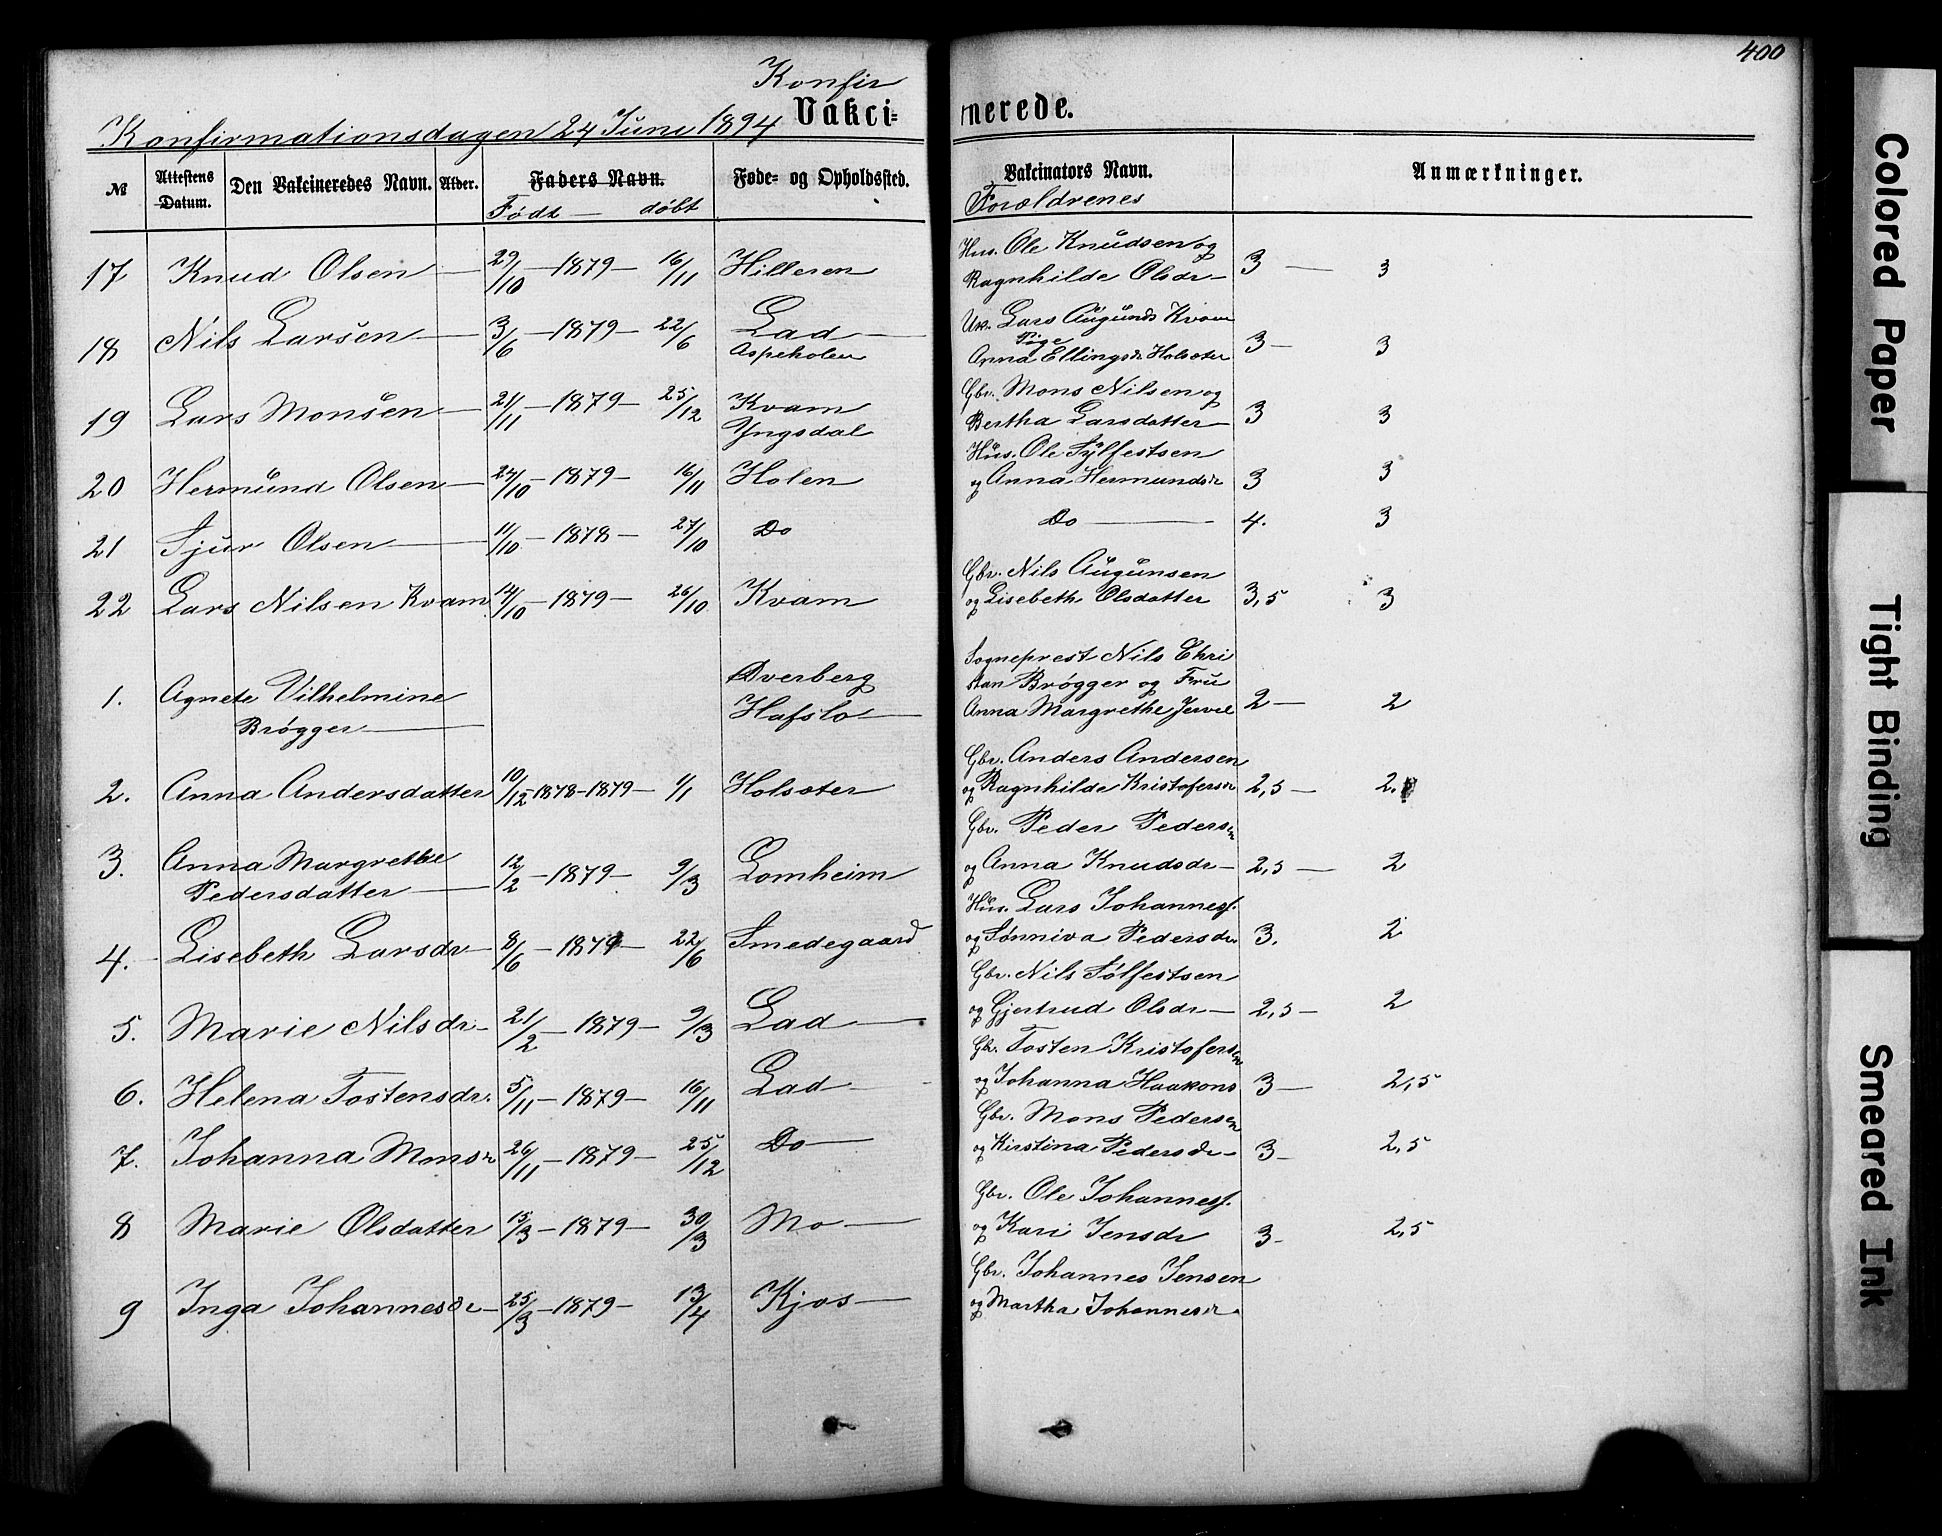 400
Konfir
Konfirmationsdagen 24 Juni 1894 Vakci= nerede.
№ Attestens Datum. Den Vakcineredes Navn. Alder. Faders Navn. Føde= og Opholdssted. Vakcinators Navn. Anmærkninger.
Født — døbt Forældrenes
Hus. Ole Knudsen og
17 Knud Olsen — 29/10 — 1879 — 16/11 Hilleren Ragnhilde Olsdr — 3 — 3
Uk. Lars Augunds Kvam
18 Nils Larsen — 3/6 — 1879 — 22/6 Lad — Pige 3 — 3
Aspeholen Anna Ellingsdr Holsæter
Gbr. Mons Nilsen og
19 Lars Monsen — 21/11 — 1879 — 25/12 Kvam Bertha Larsdatter — 3 3
Yngsdal
Hus. Ole Sylfestsen
20 Hermund Olsen — 24/10 — 1879 — 16/11 Holen og Anna Hermundsdr 3 3
21 Sjur Olsen — 11/10 — 1878 — 27/10 Do Do — 4. 3
Gbr. Nils Augunsen
22 Lars Nilsen Kvam 14/10 — 1879 — 26/10 Kvam og Lisebeth Olsdatter 3,5 3
Sogneprest Nils Chri
1. Agnete Vilhelmine Dverberg stan Brøgger og Fru
Brøgger — Hafslo — Anna Margrethe Jervel 2 — 2
Gbr. Anders Andersen
2. Anna Andersdatter 10/12 1878-1879 — 1/1 Holsæter og Ragnhilde Kristofersdr 2,5 — 2.
Gbr. Peder Pedersen
3. Anna Margrethe 12/2 — 1879 — 9/3 Lomheim og Anna Knudsdr — 2,5 — 2
Pedersdatter —
Hus. Lars Johanness.
4. Lisebeth Larsdr — 8/6 — 1879 22/6 Smedegaard og Sønniva Pedersdr 3. 2
Gbr. Nils Sølfestsen
5. Marie Nilsdr — 21/2 — 1879 — 9/3 Lad — og Gjertrud Olsdr — 2,5 — 2
Gbr. Tosten Kristofersen
6. Helena Tostensdr. 5/11 — 1879 — 16/11 Lad — og Johanna Haakons 3 — 2,5
Gbr. Mons Pedersen
7. Johanna Monsdr 26/11 — 1879 — 25/12 Do — og Kirstina Pedersdr — 3 — 2,5
Gbr. Ole Johanness.
8 Marie Olsdatter 15/3 — 1879 — 30/3 Mo — og Kari Jensdr 3 — 2,5
Gbr. Johannes Jensen
9 Inga Johannesdr — 25/3 — 1879 — 13/4 Kjos — og Martha Johannesdr
Colored Paper
Tight Binding
Smeared Ink